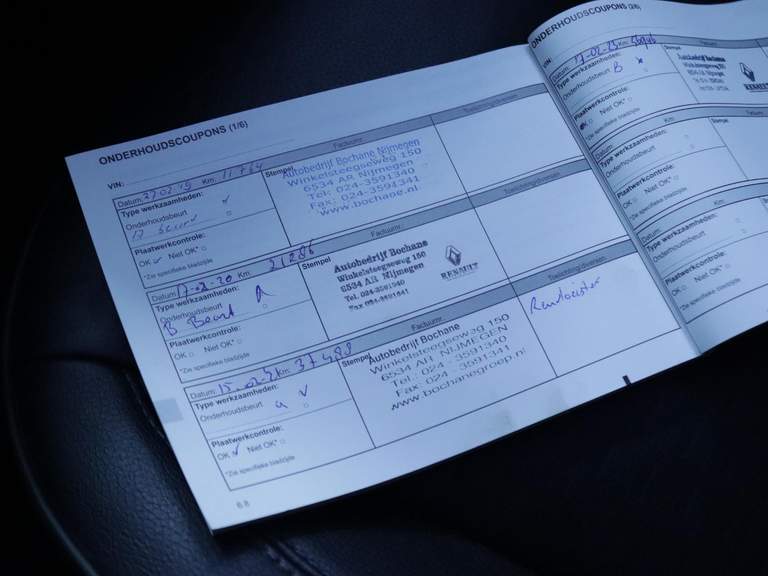 ONDERHOUDSCOUPONS (1/6)
VIN:
Factuurnr.
Toelichting/diversen
Datum: 27.02.19 Km: 11764
Stempel
Type werkzaamheden:
Onderhoudsbeurt
Plaatwerkcontrole:
OK Niet OK*
*Zie specifieke bladzijde
Autobedrijf Bochane Nijmegen
Winkelsteegseweg 150
6534 AR Nijmegen
Tel: 024-3591340
Fax: 024-3591341
www.bochane.nl
Factuurnr.
Toelichting/diversen
Datum: 17-02-20 Km: 21286
Stempel
Type werkzaamheden:
Onderhoudsbeurt A
B Beurt
Plaatwerkcontrole:
OK Niet OK*
*Zie specifieke bladzijde
Autobedrijf Bochane
Winkelsteegseweg 150
6534 AR Nijmegen
Tel. 024-3591340
Fax 024-3591341
RENAULT
Factuurnr.
Toelichting/diversen
Datum: 15-02-21 Km: 37488
Stempel
Type werkzaamheden:
Onderhoudsbeurt a
Plaatwerkcontrole:
OK Niet OK*
*Zie specifieke bladzijde
Autobedrijf Bochane
Winkelsteegseweg 150
6534 AR NIJMEGEN
Tel.: 024 - 3591340
Fax: 024 - 3591341
www.bochanegroep.nl
6.8
ONDERHOUDSCOUPONS (2/6)
VIN:
Factuurnr.
Datum: 17-02-23 Km:
Stempel
Type werkzaamheden:
Onderhoudsbeurt B
Plaatwerkcontrole:
OK Niet OK*
*Zie specifieke bladzijde
Autobedrijf Bochane
Winkelsteegseweg 150
RENAULT
Datum: Km:
Stempel
Type werkzaamheden:
Onderhoudsbeurt
Plaatwerkcontrole:
OK Niet OK*
*Zie specifieke bladzijde
Datum: Km:
Stempel
Type werkzaamheden:
Onderhoudsbeurt
Plaatwerkcontrole:
OK Niet OK*
*Zie specifieke bladzijde